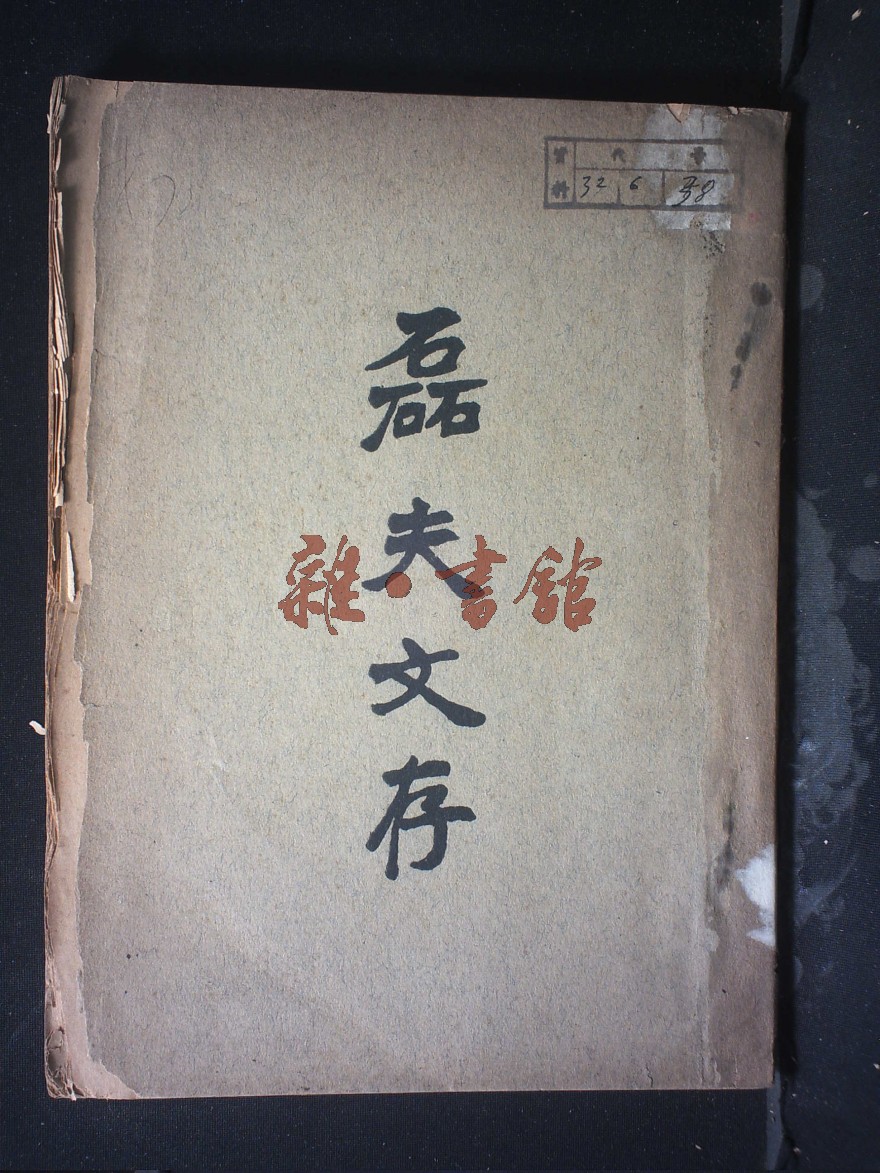 資料 代号
32 6
磊夫文存
雜·書館